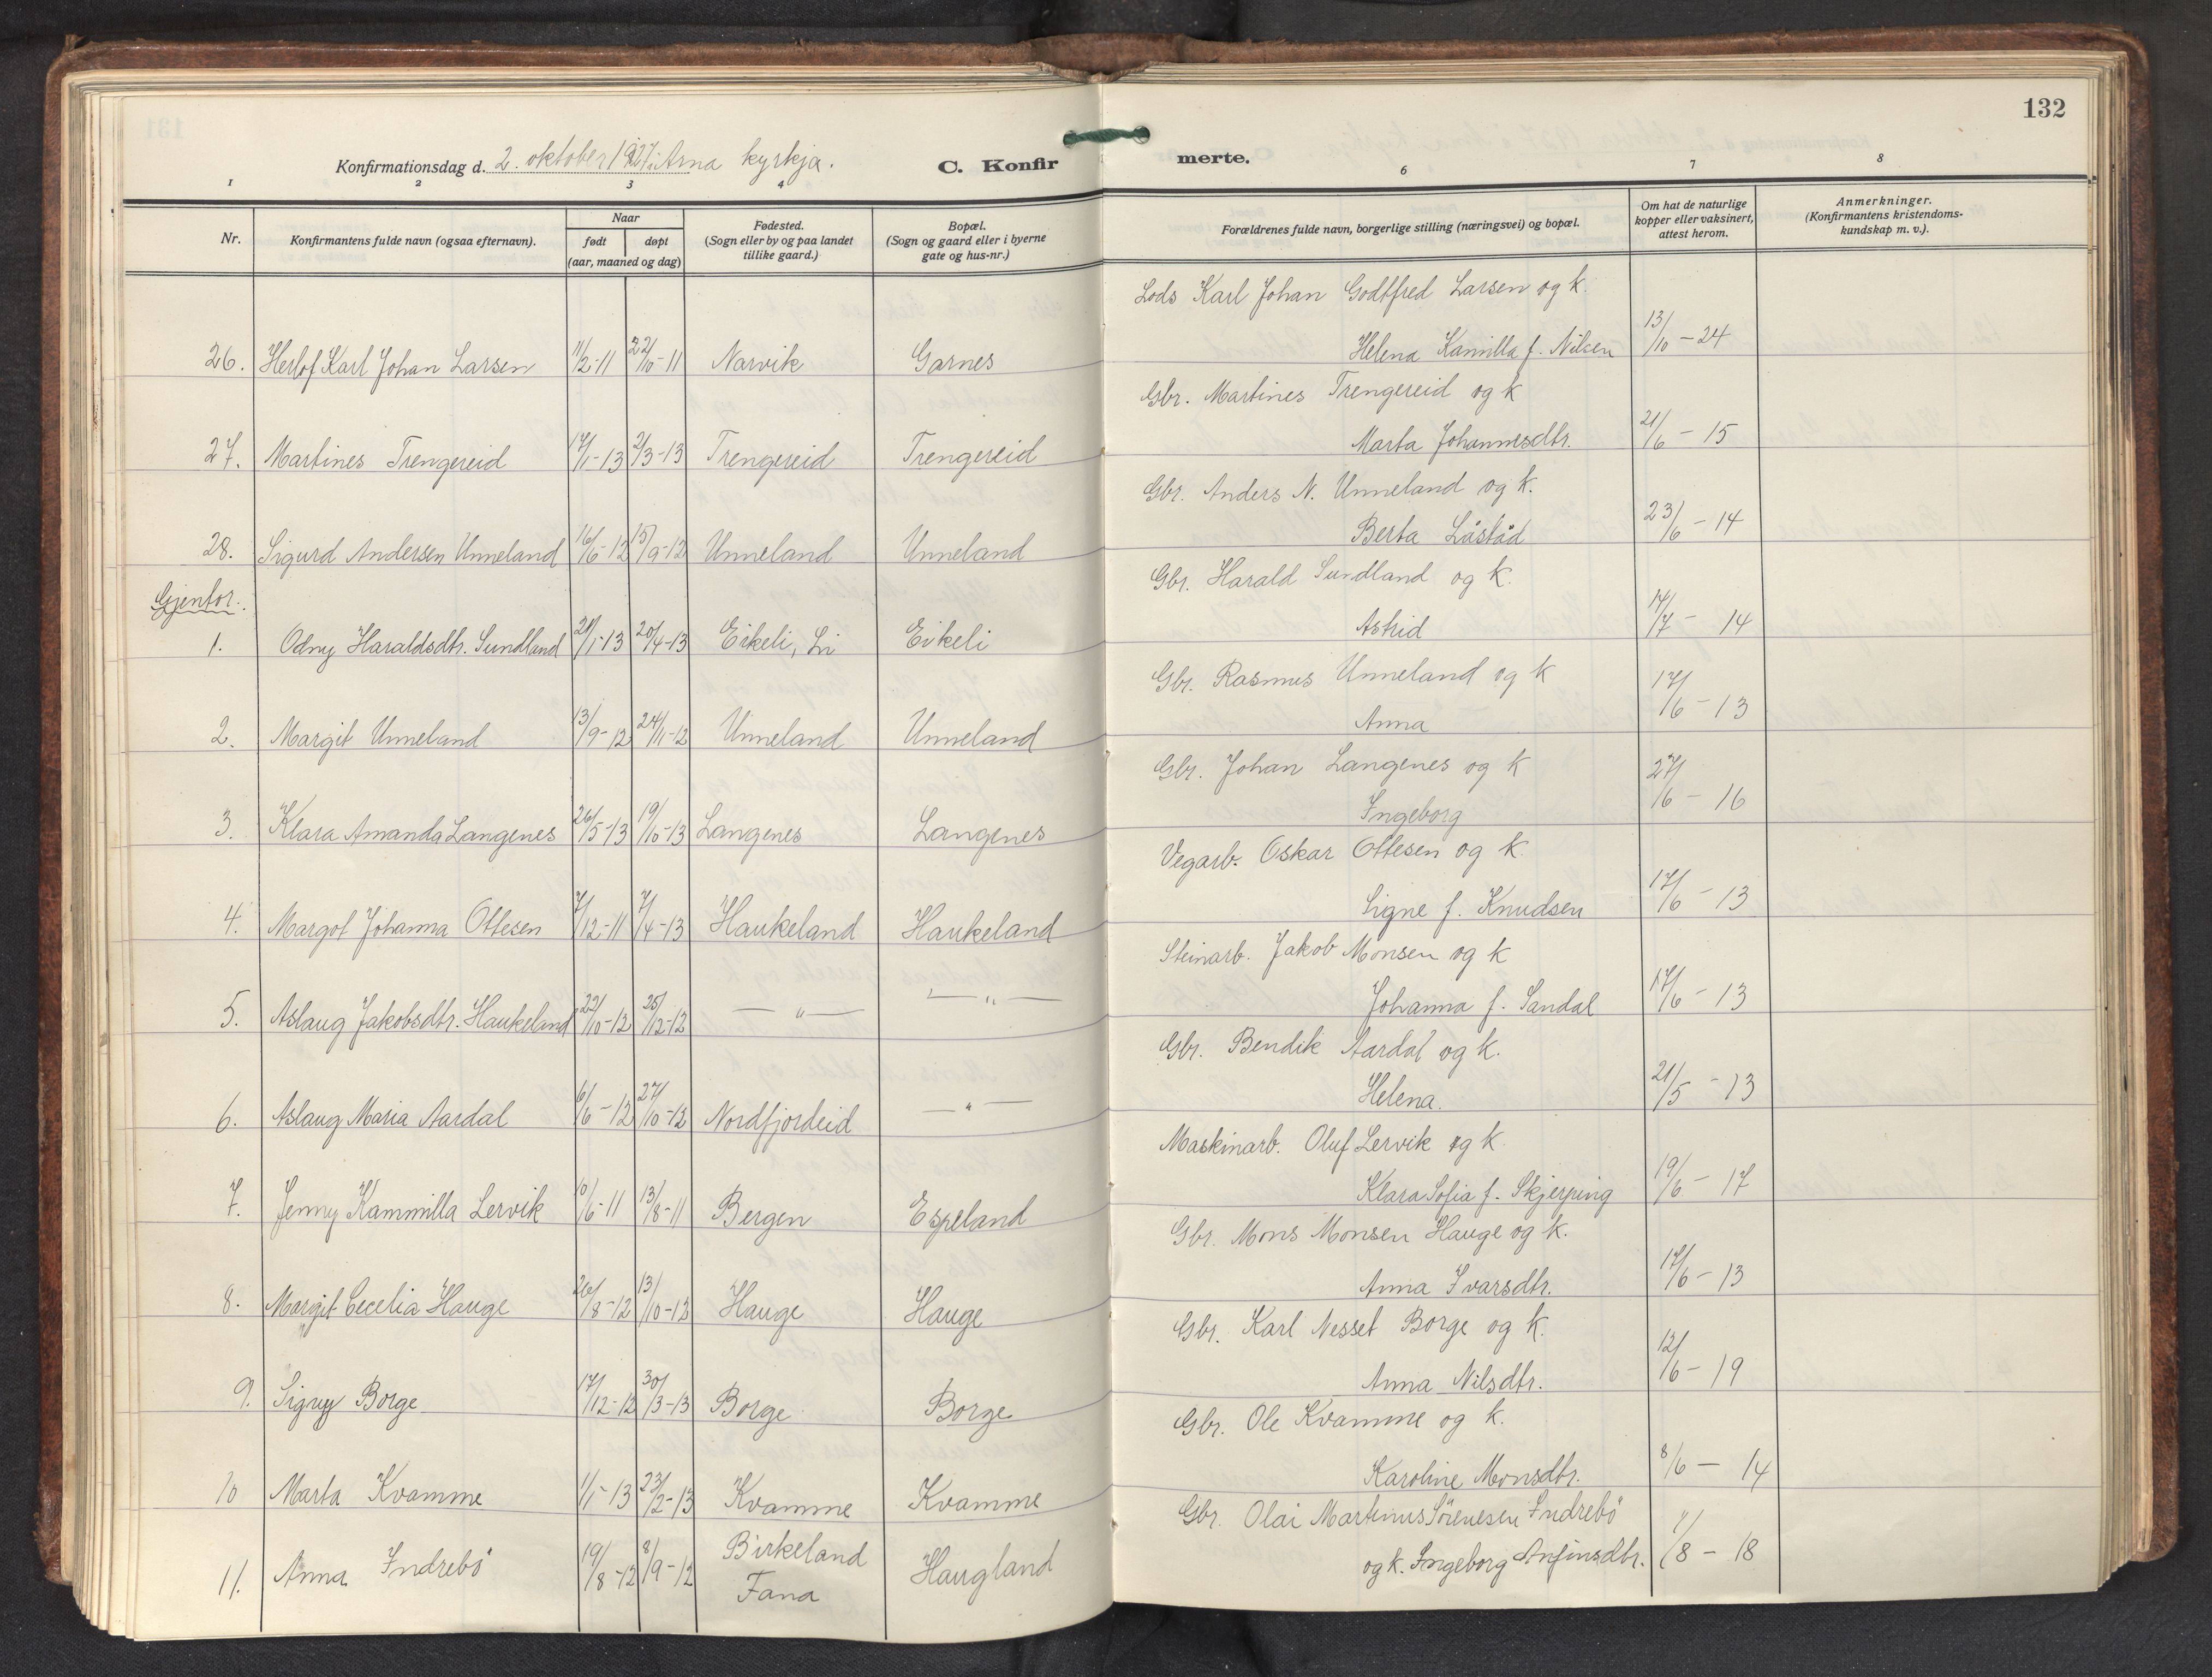 131
132
Konfirmationsdag d. 2. oktober 1927 i Arna kyrkja. C. Konfirmerte.
1 2 3 4 6 7 8
Nr. Konfirmantens fulde navn (ogsaa efternavn). Naar født døpt (aar, maaned og dag) Fødested. (Sogn eller by og paa landet tillike gaard.) Bopæl. (Sogn og gaard eller i byerne gate og hus-nr.) Forældrenes fulde navn, borgerlige stilling (næringsvei) og bopæl. Om hat de naturlige kopper eller vaksinert, attest herom. Anmerkninger. (Konfirmantens kristendoms-kundskap m. v.).
Lods Karl Johan Godtfred Larsen og k.
26. Herlof Karl Johan Larsen 11/2-11 22/10-11 Narvik Garnes Helena Kamilla f. Nilsen 13/10-24
Gbr. Martines Trengereid og k
27. Martines Trengereid 17/1-13 2/3-13 Trengereid Trengereid Marta Johannesdtr. 21/6-15
Gbr. Anders N. Unneland og k.
28. Sigurd Andersen Unneland 16/6-12 15/9-12 Unneland Unneland Berta Låstad 23/6-14
Gjentor.
Gbr. Harald Sundland og k.
1. Odny Haraldsdtr. Sundland 21/1-13 20/4-13 Eikeli, Li Eikeli Astrid 14/7-14
Gbr. Rasmus Unneland og k
2. Margit Unneland 13/9-12 24/11-12 Unneland Unneland Anna 17/6-13
Gbr. Johan Langenes og k
3. Klara Amanda Langenes 26/5-13 19/10-13 Langenes Langenes Ingeborg 27/6-16
Vegarb. Oskar Ottesen og k.
4. Margot Johanna Ottesen 7/12-11 7/4-13 Haukeland Haukeland Signe f. Knudsen 17/6-13
Steinarb. Jakob Monsen og k
5. Aslaug Jakobsdtr. Haukeland 22/10-12 25/12-12 — " — — " — Johanna f. Sandal 17/6-13
Gbr. Bendik Aardal og k.
6. Aslaug Maria Aardal 6/6-12 27/10-12 Nordfjordeid — " — Helena. 21/5-13
Maskinarb. Oluf Lervik og k.
7. Jenny Kammilla Lervik 10/6-11 13/8-11 Bergen Espeland Klara Sofia f. Skjerping 19/6-17
Gbr. Mons Monsen Hauge og k.
8. Margit Cecelia Hauge 26/8-12 13/10-13 Hauge Hauge Anna Ivarsdtr. 17/6-13
Gbr. Karl Nesset Borge og k.
9. Signy Borge 17/12-12 30/3-13 Borge Borge Anna Nilsdtr. 12/6-19
Gbr. Ole Kvamme og k.
10 Marta Kvamme 1/1-13 23/2-13 Kvamme Kvamme Karoline Monsdtr. 8/6-14
Gbr. Olai Martinus Sörenesen Indrebö
11. Anna Indrebö 19/8-12 8/9-12 Birkeland Fana Haugland og k. Ingeborg Anfinsdtr. 1/8-18